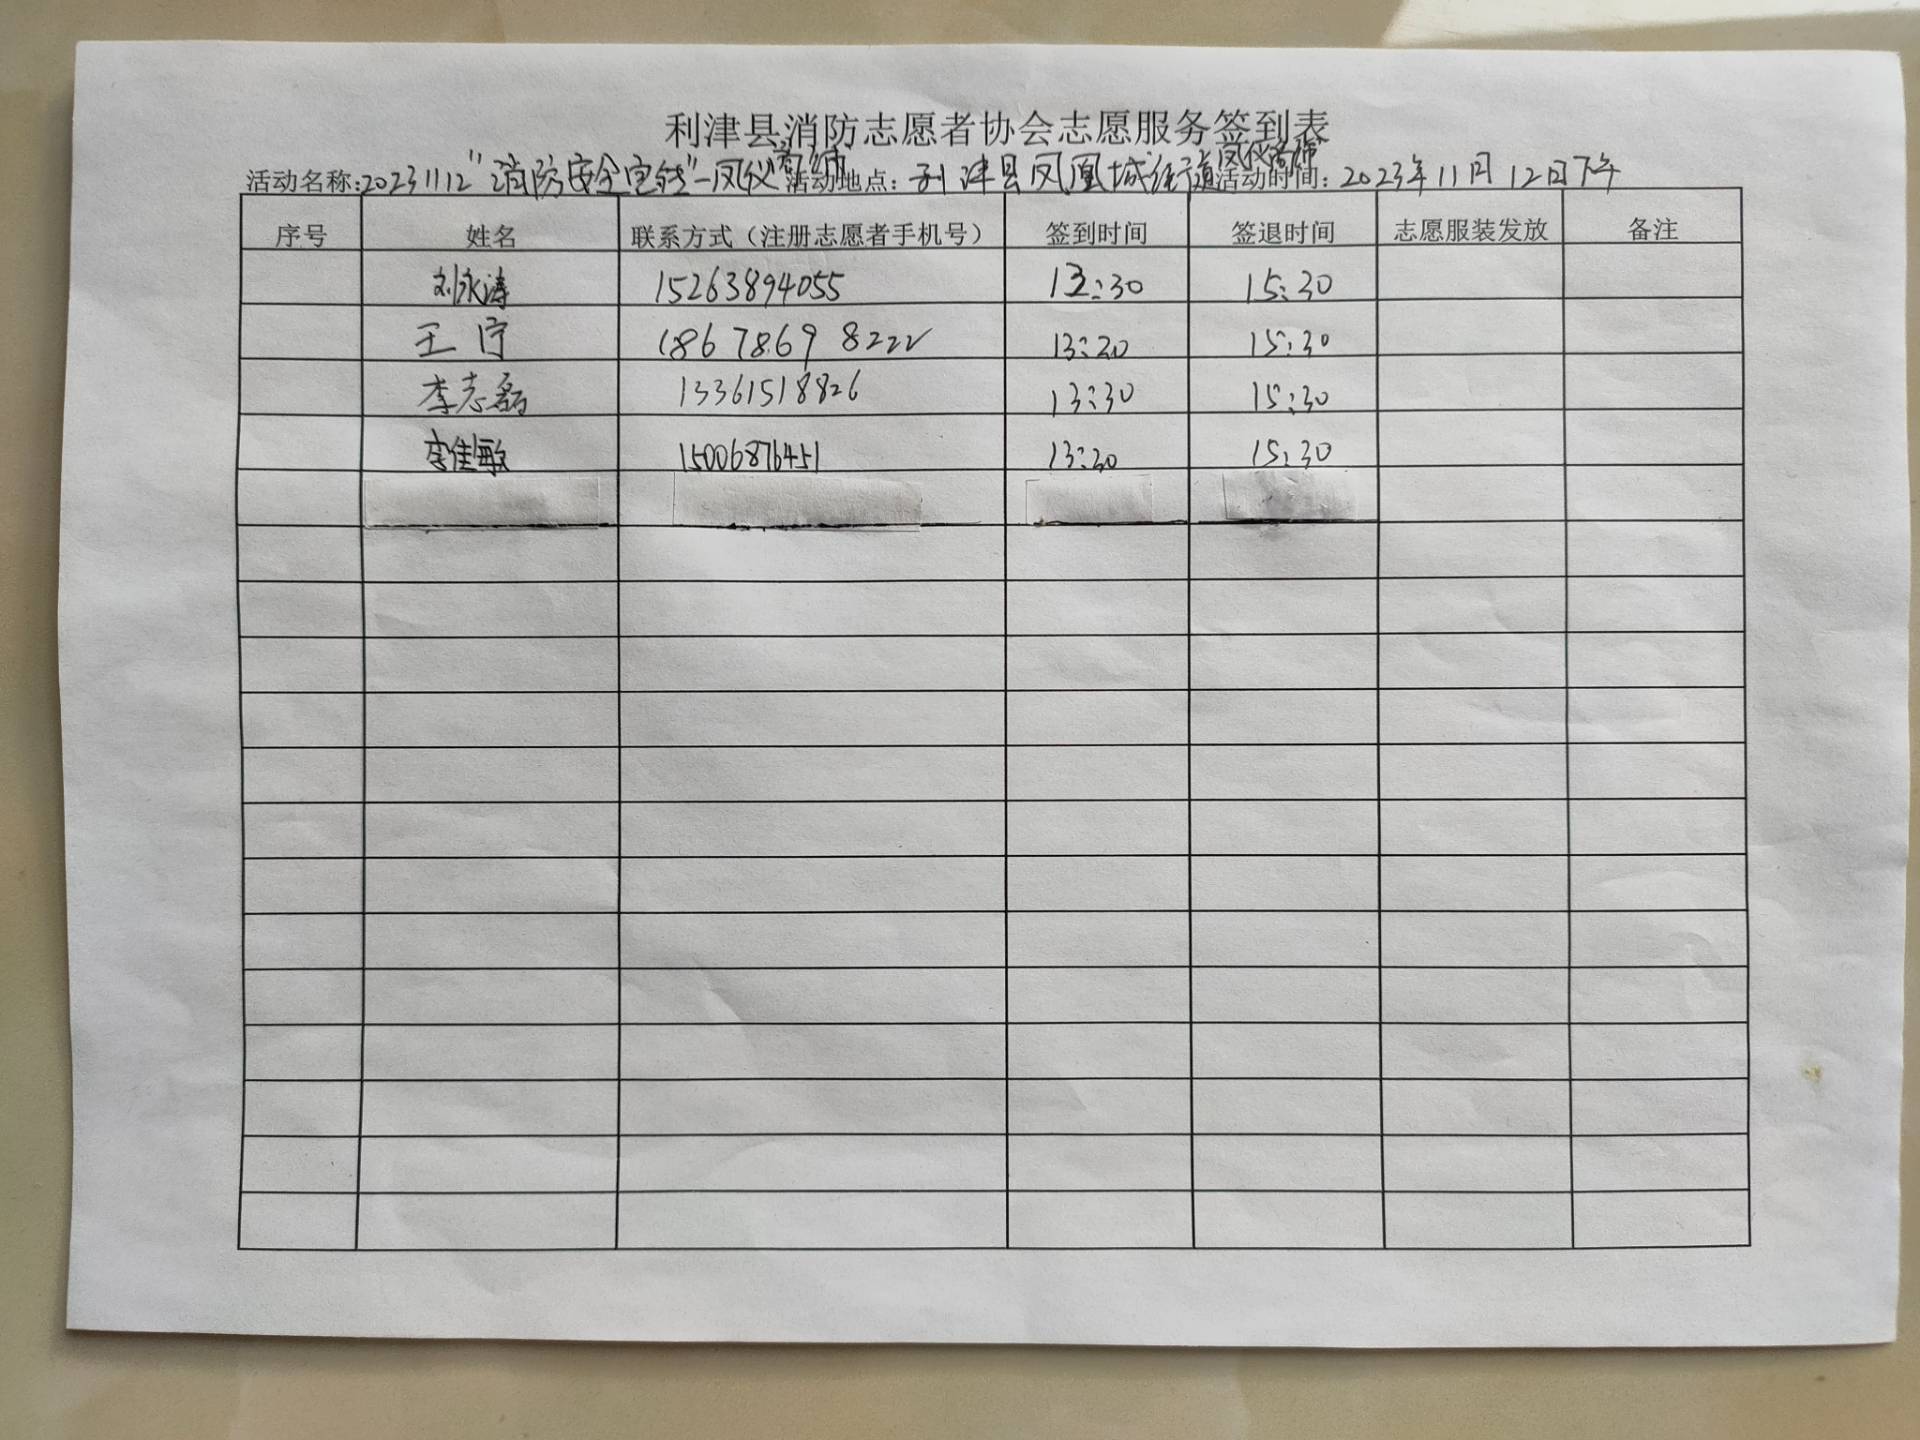 利津县消防志愿者协会志愿服务签到表
活动名称:20231112"消防安全宣传"—凤仪 活动地点: 利津县凤凰城街道凤仪 活动时间: 2023年11月12日下午
序号 姓名 联系方式（注册志愿者手机号） 签到时间 签退时间 志愿服装发放 备注
刘永涛 15263894055 13:30 15:30
王宁 18678698222 13:30 15:30
李志磊 13361518826 13:30 15:30
李佳敏 15006876451 13:30 15:30